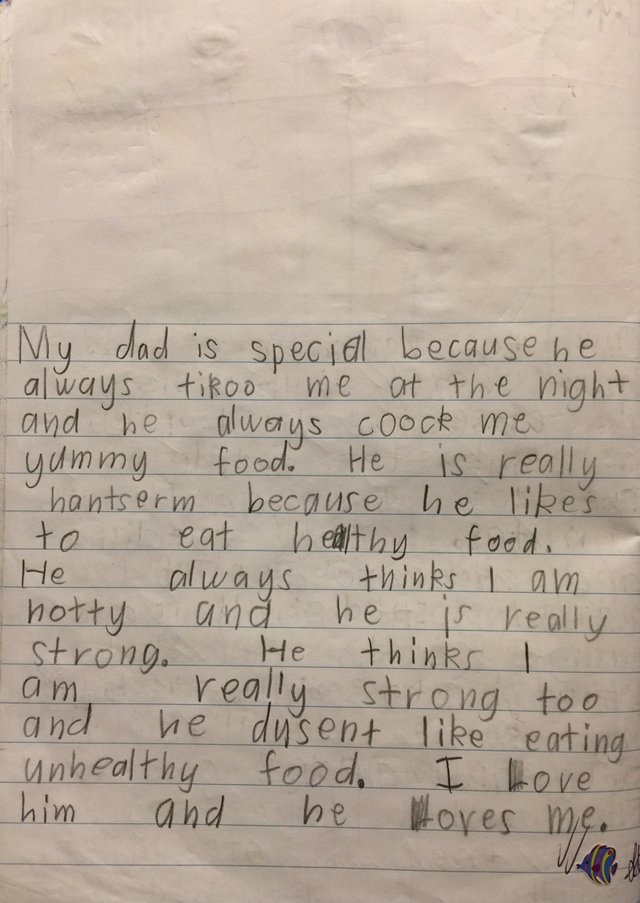 My dad is special because he
always tikoo me at the night
and he always coock me
yummy food. He is really
hantserm because he likes
to eat healthy food.
He always thinks I am
notty and he is really
strong. He thinks I
am really strong too
and he dusent like eating
unhealthy food. I Love
him and he Loves me.